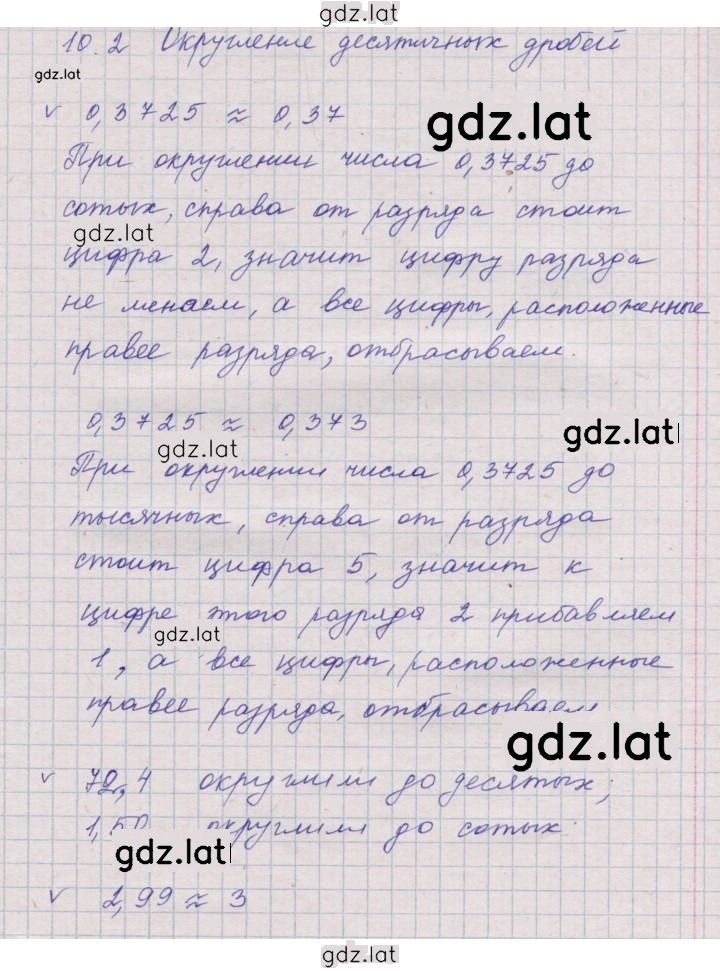 gdz.lat
10.2 Округление десятичных дробей
gdz.lat
v 0,3725 ≈ 0,37
gdz.lat
При округлении числа 0,3725 до
сотых, справа от разряда стоит
gdz.lat
цифра 2, значит цифру разряда
не меняем, а все цифры, расположенные
правее разряда, отбрасываем.
0,3725 ≈ 0,373
gdz.lat
gdz.lat
При округлении числа 0,3725 до
тысячных, справа от разряда
стоит цифра 5, значит к
цифре этого разряда 2 прибавляем
gdz.lat
1, а все цифры, расположенные
правее разряда, отбрасываем
gdz.lat
v 72,4 округлили до десятых;
1,50 округлили до сотых.
gdz.lat
v 2,99 ≈ 3
gdz.lat